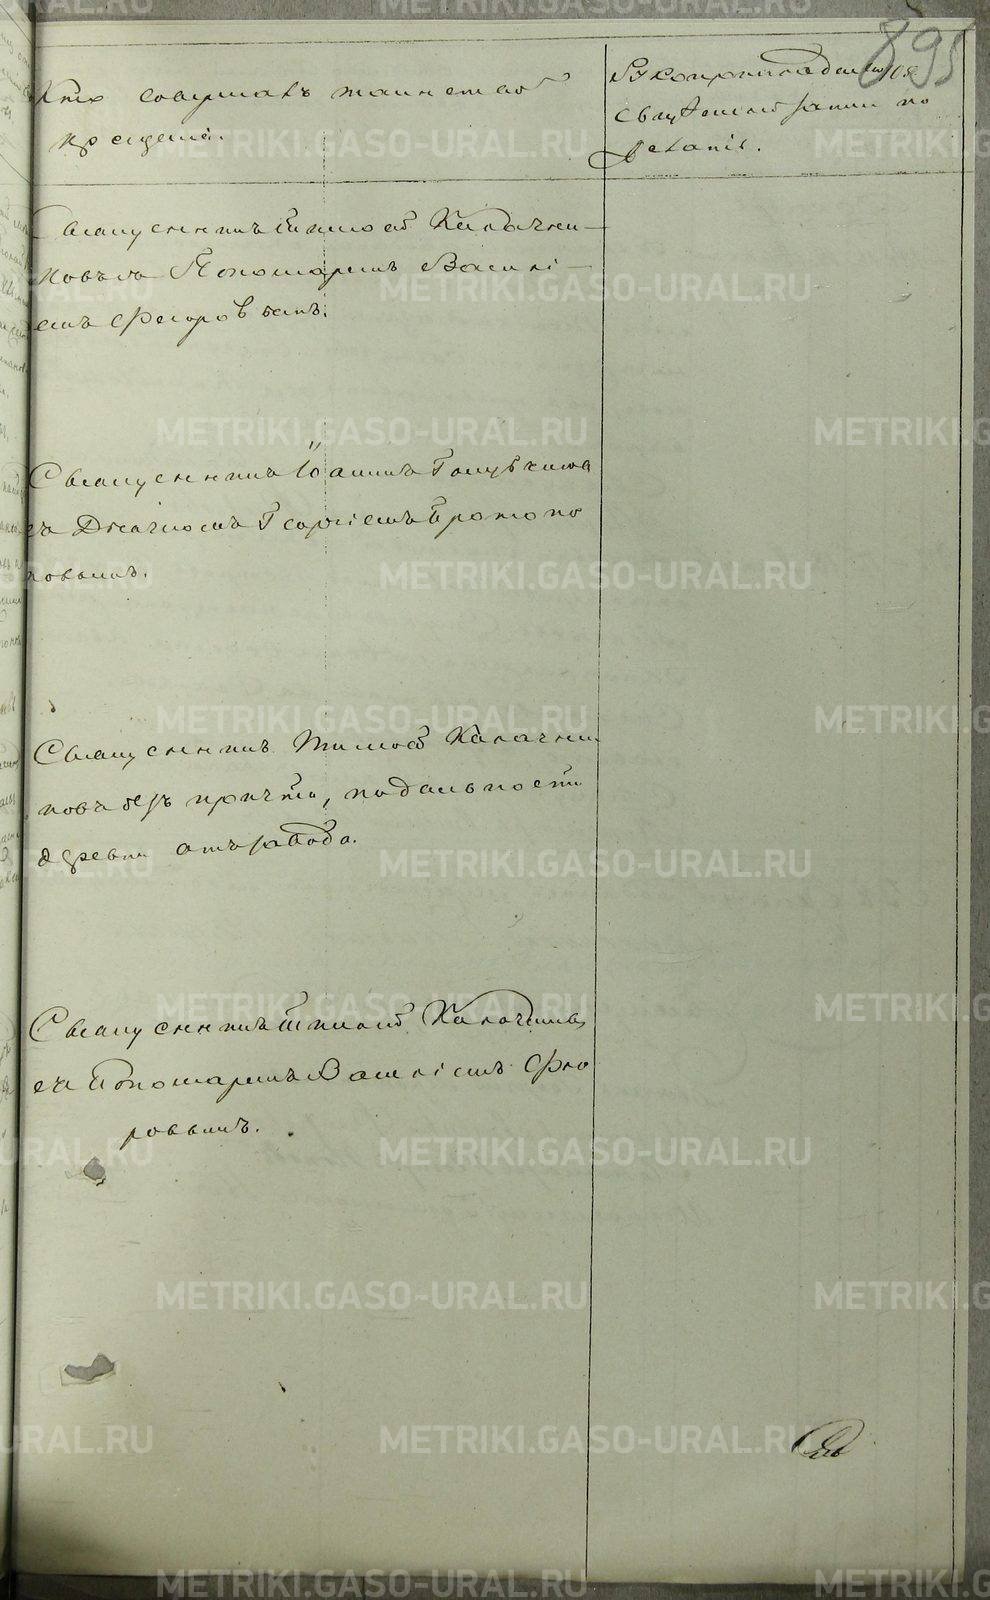 895
Кто совершалъ таинство
крещенія.
Рукоприкладство
свидетелей записи по
желанію.
Священникъ Тимофей Калачни-
ковъ съ Пономаремъ Василі-
емъ Флоровымъ.
Священникъ Іоаннъ
съ Дьячкомъ Георгіемъ Протопо
повымъ.
Священникъ Тимофей Калачни
ковъ безъ причта, по дальности
деревни отъ завода.
Священникъ Тимофей Калачниковъ
съ Пономаремъ Василіемъ Фло
ровымъ.
METRIKI.GASO-URAL.RU